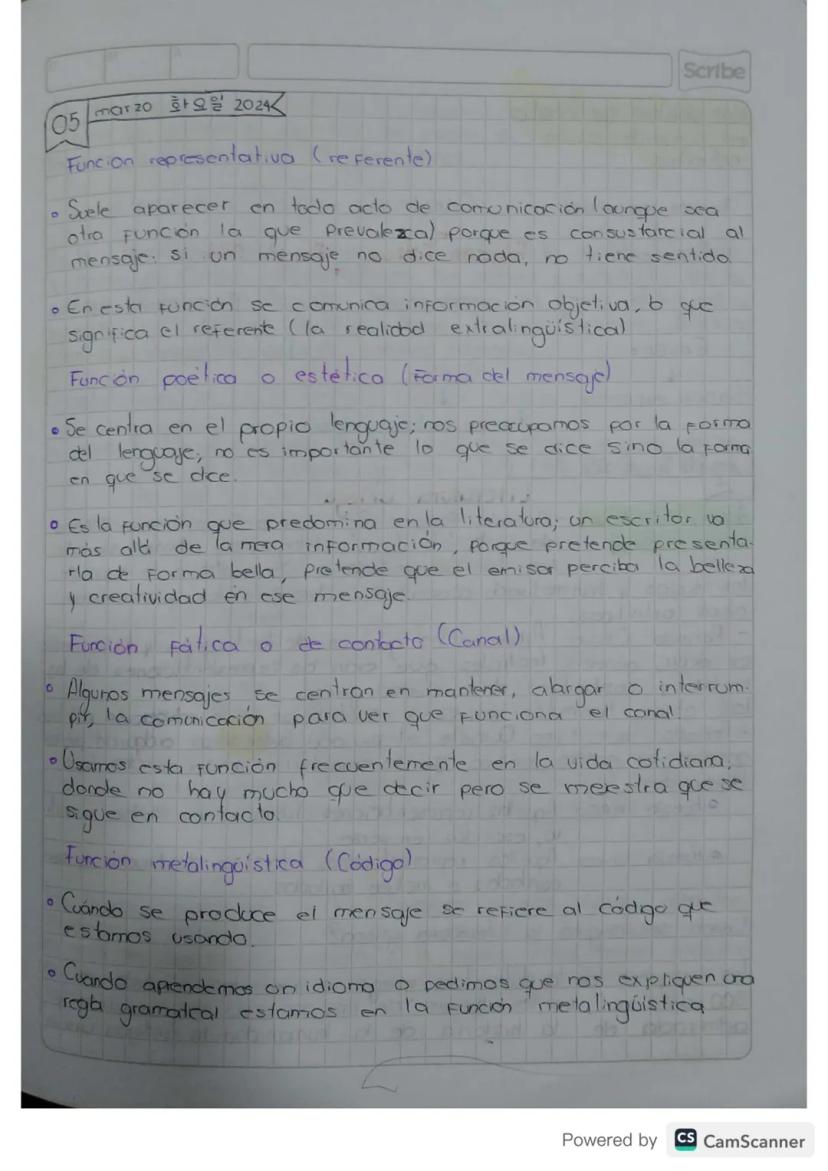 Scribe
05 marzo 화요일 2024
Función representativa (referente)
• Suele aparecer en todo acto de comunicación (aunque sea
otra función la que prevalezca) porque es consustancial al
mensaje: si un mensaje no dice nada, no tiene sentido
• En esta función se comunica información objetiva, lo que
significa el referente (la realidad extralingüística)
Función poética o estética (Forma del mensaje)
• Se centra en el propio lenguaje; nos preocupamos por la forma
del lenguaje; no es importante lo que se dice sino la forma
en que se dice.
• Es la función que predomina en la literatura; un escritor va
más allá de la mera información, porque pretende presenta-
rla de forma bella, pretende que el emisor perciba la belleza
y creatividad en ese mensaje.
Función Fática o de contacto (Canal)
• Algunos mensajes se centran en mantener, alargar o interrum-
pir, la comunicación para ver que funciona el canal
• Usamos esta función frecuentemente en la vida cotidiana,
donde no hay mucho que decir pero se meestra que se
sigue en contacto.
Función metalingüística (Código)
• Cuándo se produce el mensaje se refiere al código que
estamos usando.
• Cuando aprendemos un idioma o pedimos que nos expliquen una
regla gramatcal estamos en la función metalingüística
Powered by CS CamScanner